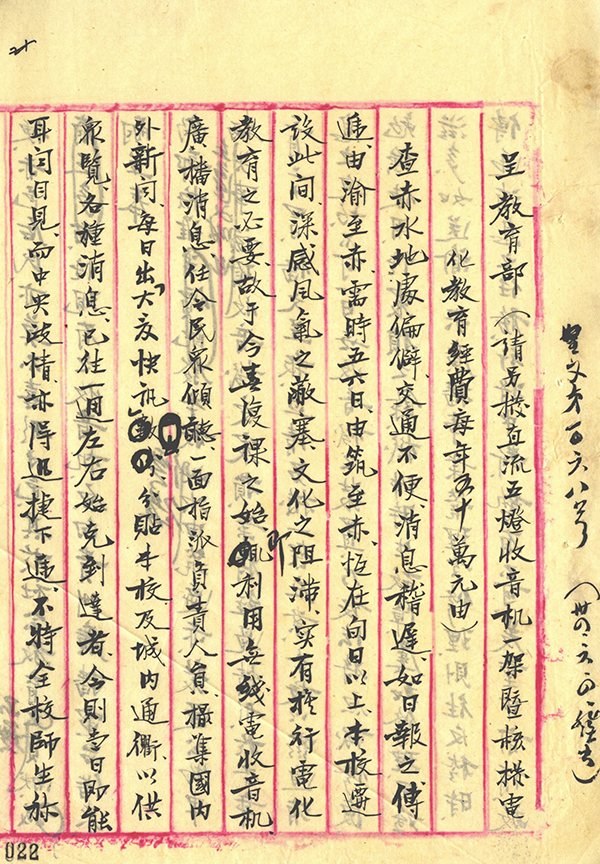 呈文第一百六八号
(卅四、六、四、發出)
呈教育部(請另撥直流五燈收音机一架暨核撥電
化教育經費每年五十萬元由)
查赤水地處偏僻、交通不便、消息稽遲、如日報之傳
遞、由渝至赤、需時五六日、由筑至赤、恆在旬日以上、本校遷
設此间、深感風氣之蔽塞、文化之阻滯、实有推行電化
教育之必要、故于今春復課之始、即利用無线電收音机、
廣播消息、任令民眾傾聽、一面指派負責人員、撮集國内
外新闻、每日出「大夏快訊」分貼本校及城内通衢、以供
眾覽、各種消息、已往一週左右始克到達者、今則当日即能
耳闻目見、而中央政情、亦得迅捷下逮、不特全校師生称
022